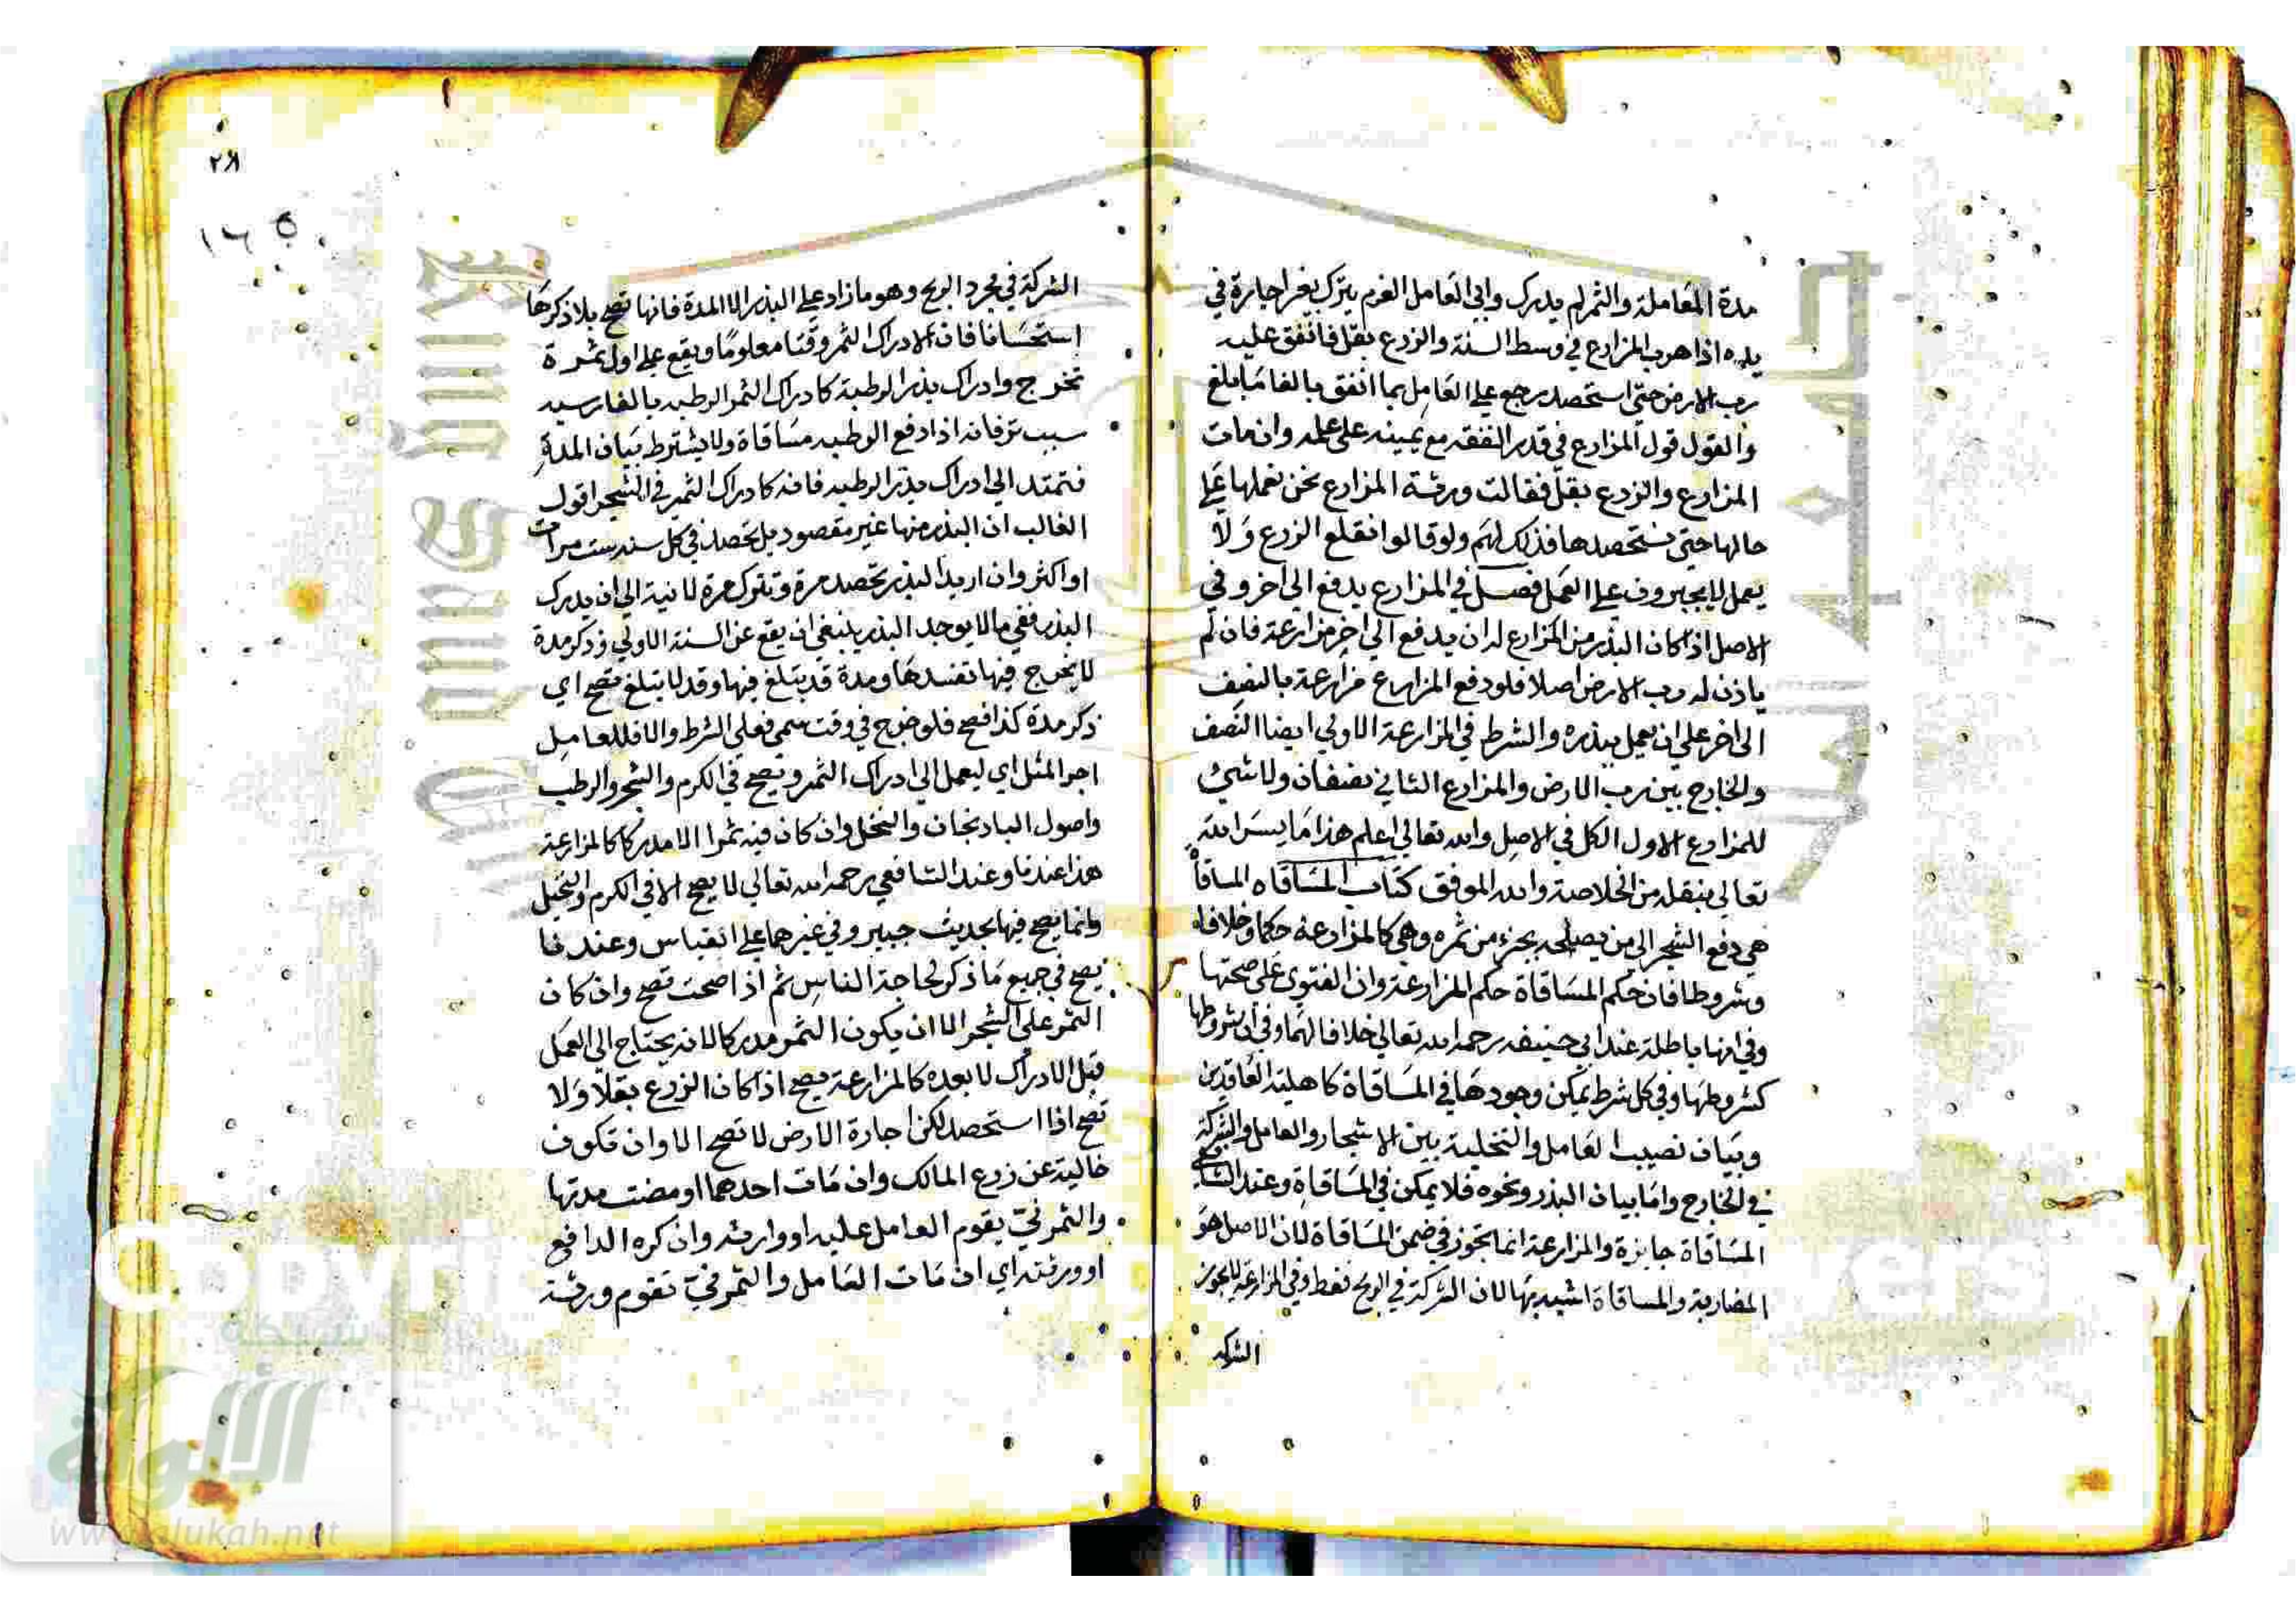 مدة المعاملة والثمر لم يدرك وابى العامل الغرم يترك بغير اجارة في
يده اذا هرب المزارع في وسط السنة والزرع بقل فانفق عليه
رب الارض حتى استحصد يرجع على العامل بما انفق بالغا ما بلغ
والقول قول المزارع في قدر النفقة مع يمينه على علمه وان مات
المزارع والزرع بقل فقالت ورثة المزارع نحن نعملها على
حالها حتى نستحصدها فذلك لهم ولو قالوا نقلع الزرع ولا
يعمل لا يجبرون على العمل فصل في المزارع يدفع الى اخر وفي
الاصل اذا كان البذر من المزارع له ان يدفع الى اخر مزارعة فان لم
ياذن له رب الارض اصلا فلو دفع المزارع مزارعة بالنصف
الى اخر على ان يعمل ببذره والشرط في المزارعة الاولي ايضا النصف
والخارج بين رب الارض والمزارع الثاني نصفان ولا شيئ
للمزارع الاول الكل في الاصل والله تعالى اعلم هذا ما يسر الله
تعالى بنقله من الخلاصة والله الموفق كتاب المساقاه المساقاة
هي دفع الشجر الى من يصلحه بجزء من ثمره وهي كالمزارعة حكما وخلافا
وشروطا فان حكم المساقاة حكم المزارعة وان الفتوى على صحتها
وفي انها باطلة عند ابي حنيفه رحمه الله تعالى خلافا لهما وفي ان شروطها
كشروطها وفي كل شرط يمكن وجودها في المساقاة كاهلية العاقدين
وبيان نصيب العامل والتخلية بين الاشجار والعامل والشركة
في الخارج واما بيان البذر ونحوه فلا يمكن في المساقاة وعند الشافعي
المساقاة جايزة والمزارعة انما تجوز في ضمن المساقاة لان الاصل هو
المضاربة والمساقاة اشبه بها لان الشركة في الربح فقط وفي المزارعة لا يجوز
الشركة
٢٨
١٦٥
الشركة في مجرد الربح وهو ما زاد على البذر الا المدة فانها تصح بلا ذكرها
استحسانا فان لادراك الثمر وقتا معلوما ويقع على اول ثمرة
تخرج وادراك بذر الرطبة كادراك الثمر الرطبه بالفارسيه
سبب تر فانه اذا دفع الرطبه مساقاة ولا يشترط بيان المدة
فتمتد الى ادراك بذر الرطبه فانه كادراك الثمر في الشجر اقول
الغالب ان البذر منها غير مقصود بل تحصد في كل سنه ست مرات
او اكثر وان اريد البذر تحصد مرة وتترك مرة ثانية الى ان يدرك
البذر ففي ما لا يوجد البذر ينبغي ان يقع عن السنة الاولي وذكر مدة
لا يخرج فيها تفسدها ومدة قد يبتلغ فيها وقد لا يبتلغ تصح اي
ذكر مدة كذا فصح فلو خرج في وقت سمي فعلى الشرط والا فللعامل
اجر المثل اي ليعمل الى ادراك الثمر وتصح في الكرم والشجر والرطب
واصول الباذنجان والنخل وان كان فيه ثمرا الا مدركا كالمزارعة
هذا عندنا وعند الشافعي رحمه الله تعالى لا يصح الا في الكرم والنخيل
وانما يصح فيها بحديث خيبر وفي غيرهما على القياس وعندنا
يصح في جميع ما ذكر لحاجة الناس ثم اذا صحت تصح وان كان
الثمر على الشجر الا ان يكون الثمر مدركا لانه يحتاج الى العمل
قبل الادراك لا بعده كالمزارعة يصح اذا كان الزرع بقلا ولا
تصح اذا استحصد لكن اجارة الارض لا تصح الا وان تكون
خالية عن زرع المالك وان مات احدهما او مضت مدتها
والثمر نيّ يقوم العامل عليه او وارثه وان كره الدافع
او ورثته اي ان مات العامل والثمر نيّ تقوم ورثة
شبكة
الألوكة
www.alukah.net